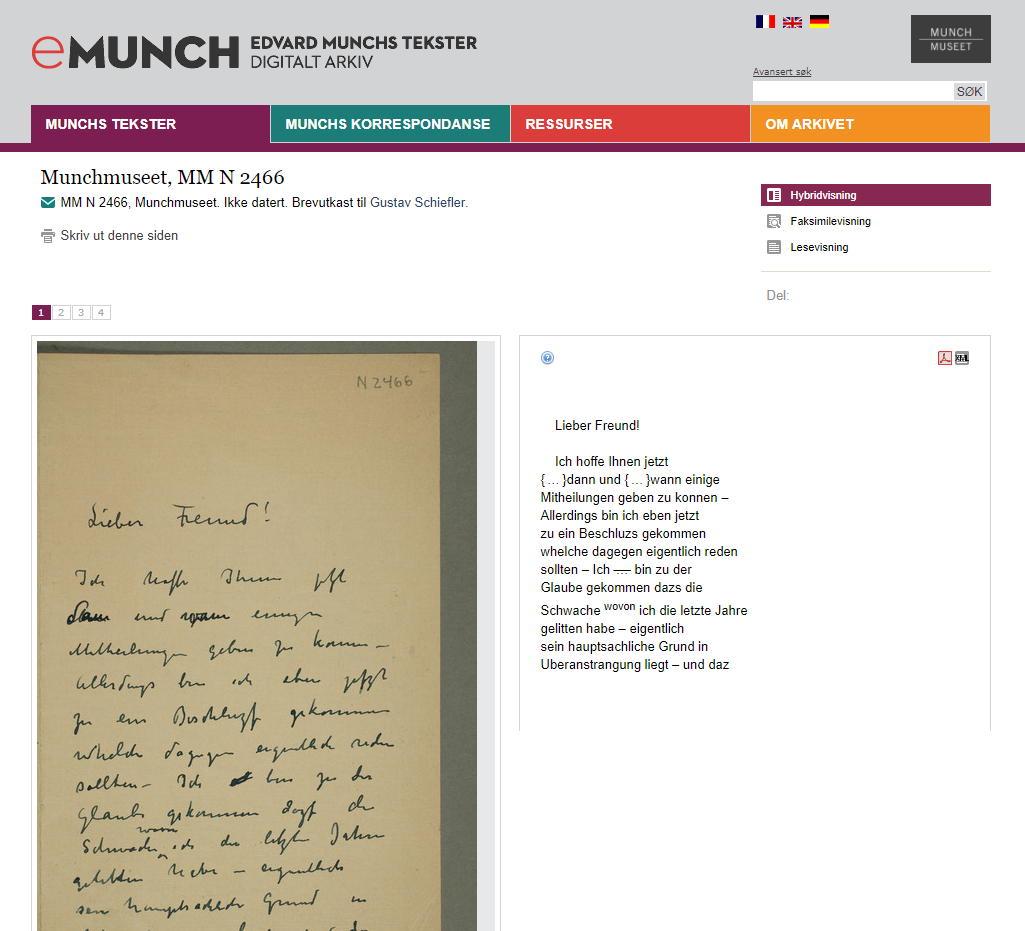 eMUNCH EDVARD MUNCHS TEKSTER
DIGITALT ARKIV
MUNCH
MUSEET
Avansert søk
SØK
MUNCHS TEKSTER
MUNCHS KORRESPONDANSE
RESSURSER
OM ARKIVET
Munchmuseet, MM N 2466
MM N 2466, Munchmuseet. Ikke datert. Brevutkast til Gustav Schiefler.
Skriv ut denne siden
Hybridvisning
Faksimilevisning
Lesevisning
Del:
1 2 3 4
N 2466
Lieber Freund!
Ich hoffe Ihnen jetzt
dann und wann einige
Mitheilungen geben zu konnen –
Allerdings bin ich eben jetzt
zu ein Beschluzs gekommen
whelche dagegen eigentlich reden
sollten – Ich bin zu der
Glaube gekommen dazs die
wovon
Schwache ich die letzte Jahre
gelitten habe – eigentlich
sein hauptsachliche Grund in
?
XML
Lieber Freund!
Ich hoffe Ihnen jetzt
{ … }dann und { … }wann einige
Mitheilungen geben zu konnen –
Allerdings bin ich eben jetzt
zu ein Beschluzs gekommen
whelche dagegen eigentlich reden
sollten – Ich .... bin zu der
Glaube gekommen dazs die
Schwache wovon ich die letzte Jahre
gelitten habe – eigentlich
sein hauptsachliche Grund in
Uberanstrangung liegt – und daz